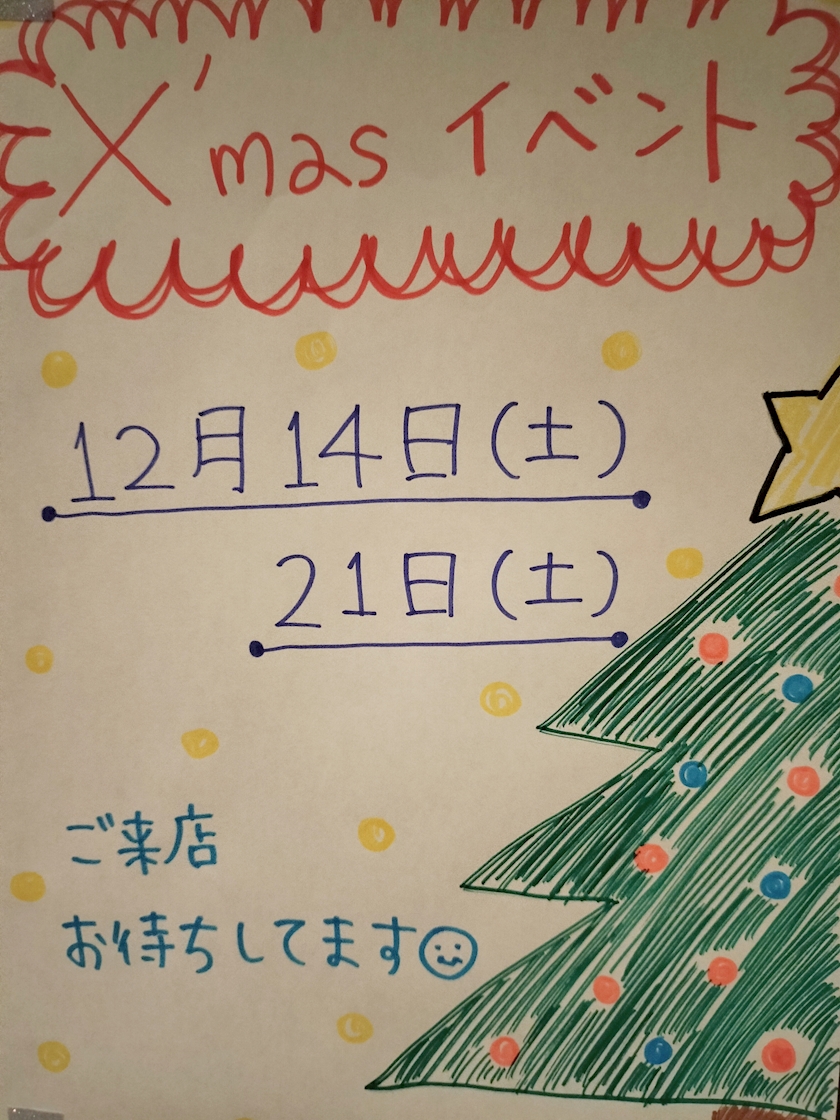 X'mas イベント
12月14日(土)
21日(土)
ご来店
お待ちしてます